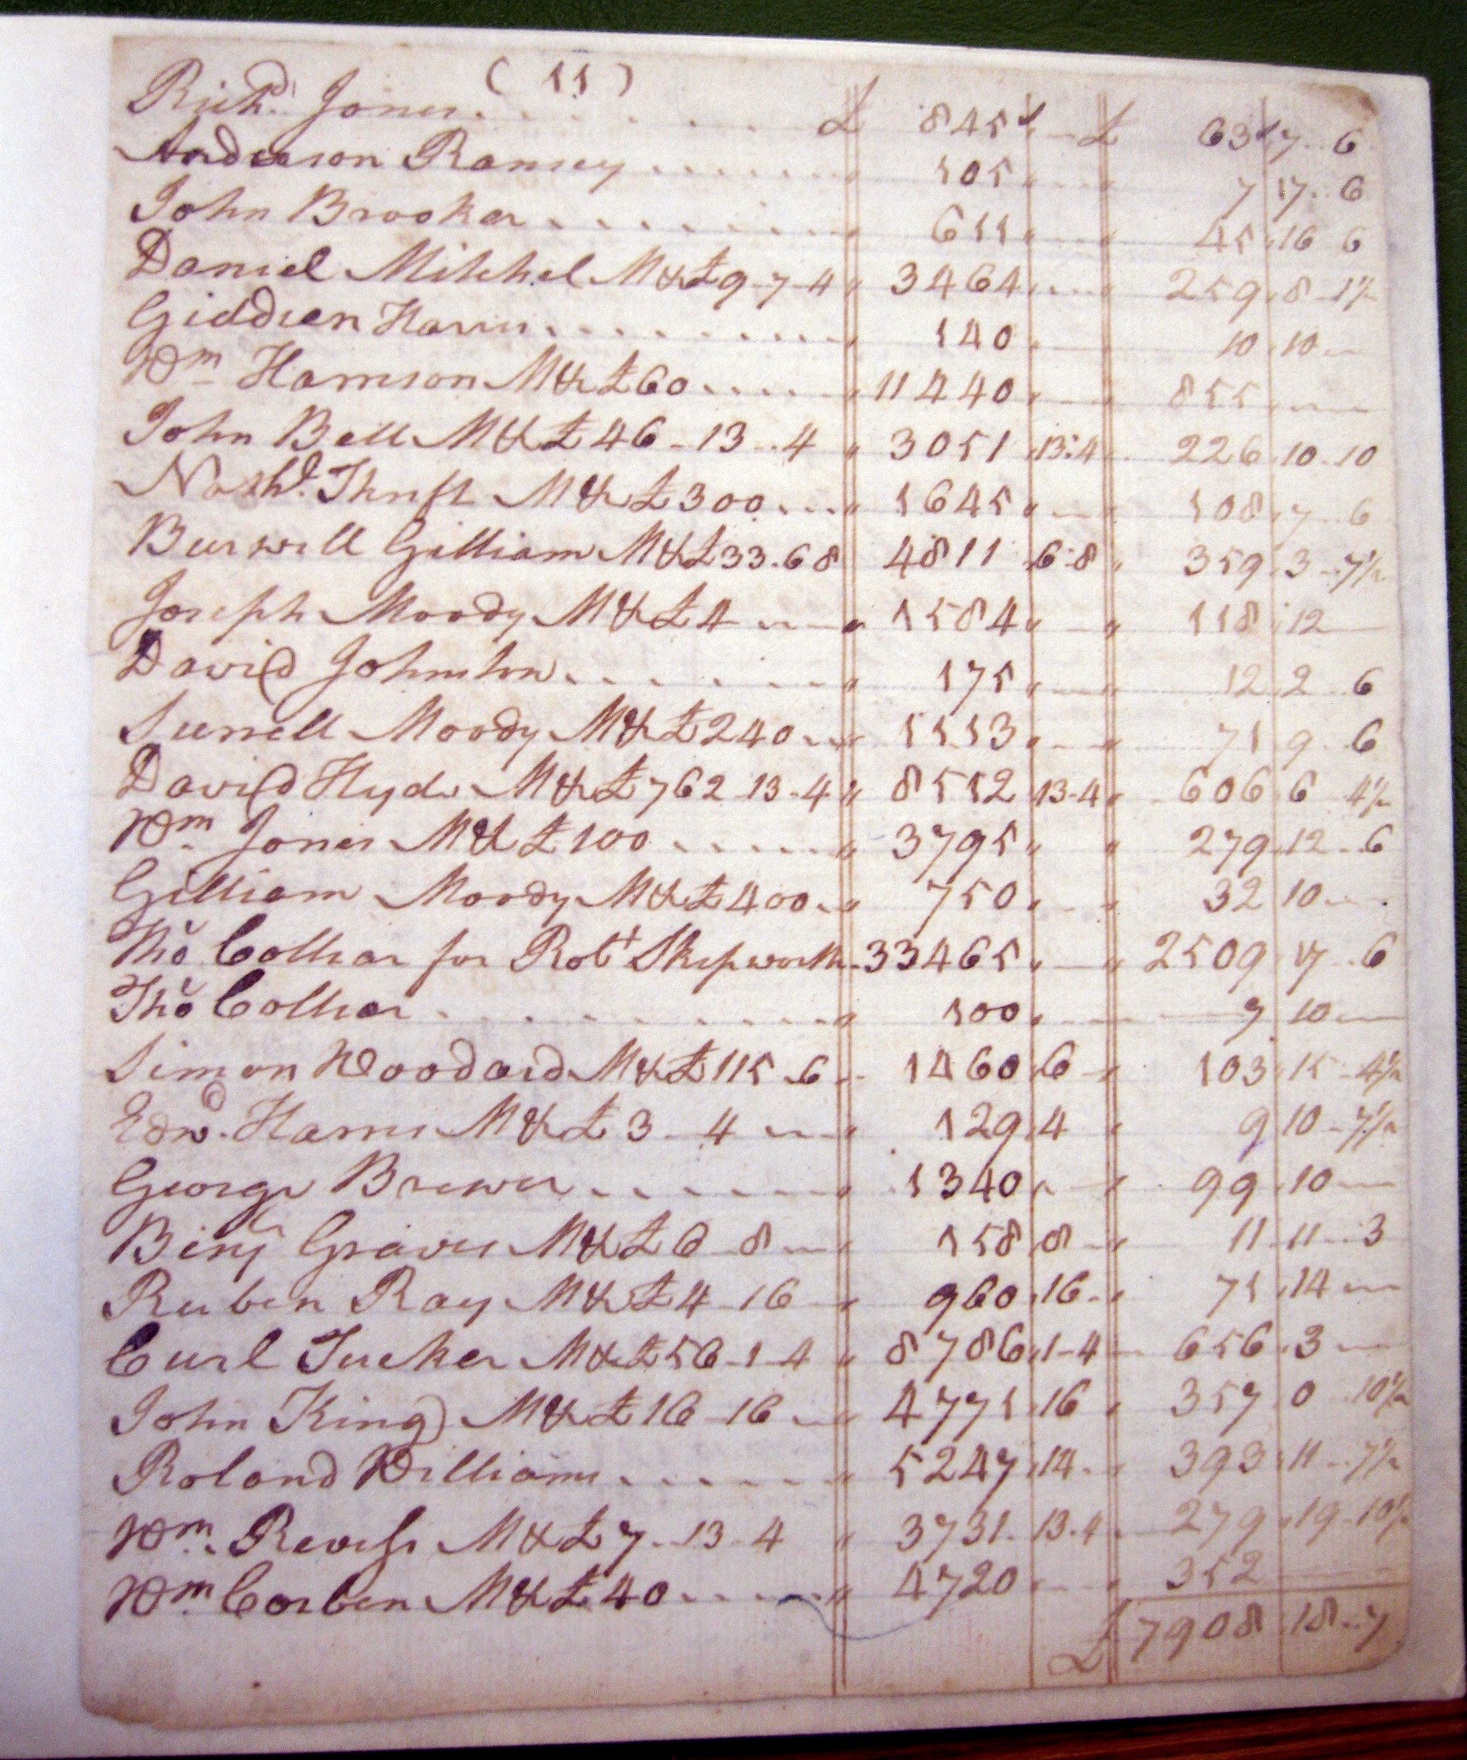 ( 11 )
Richd. Jones £ 845 £ 63 7 6
Anderson Ramsey 105 7 17 6
John Brooker 611 45 16 6
Daniel Mitchel M&£9-7-4 3464 259 8 1½
Giddien Harris 140 10 10
Wm Harrison M&£60 11440 855
John Bell M&£46-13-4 3051 13-4 226 10 10
Nathl. Thrift M&£300 1645 108 7 6
Burwell Gilliam M&£33.6 8 4811 6-8 359 3 7½
Joseph Moody M&£4 1584 118 12
David Johnston 175 12 2 6
Surrell Moody M&£240 1113 71 9 6
David Hyde M&£762-13-4 8552 13-4 606 6 4½
Wm. Jones M&£100 3795 279 12 6
Gilliam Moody M&£400 750 32 10
Tho Colliar for Robt Skipworth 33465 2509 17 6
Tho Colliar 100 7 10
Simon Woodard M&£115-6 1460 6 103 15 4½
Edwd. Harris M&£3-4 129 4 9 10 7½
George Brewer 1340 99 10
Benj Graves M&£6 8 158 8 11 11 3
Reuben Ray M&£4-16 960 16 71 14
Curl Tucker M&£56-1-4 8786 1-4 656 3
John King M&£16-16 4775 16 357 0 10½
Roland Williams 5247 14 393 11 7½
Wm. M&£7-13-4 3731 13-4 279 19 10½
Wm Corben M&£40 4720 352
£ 7908 18 7